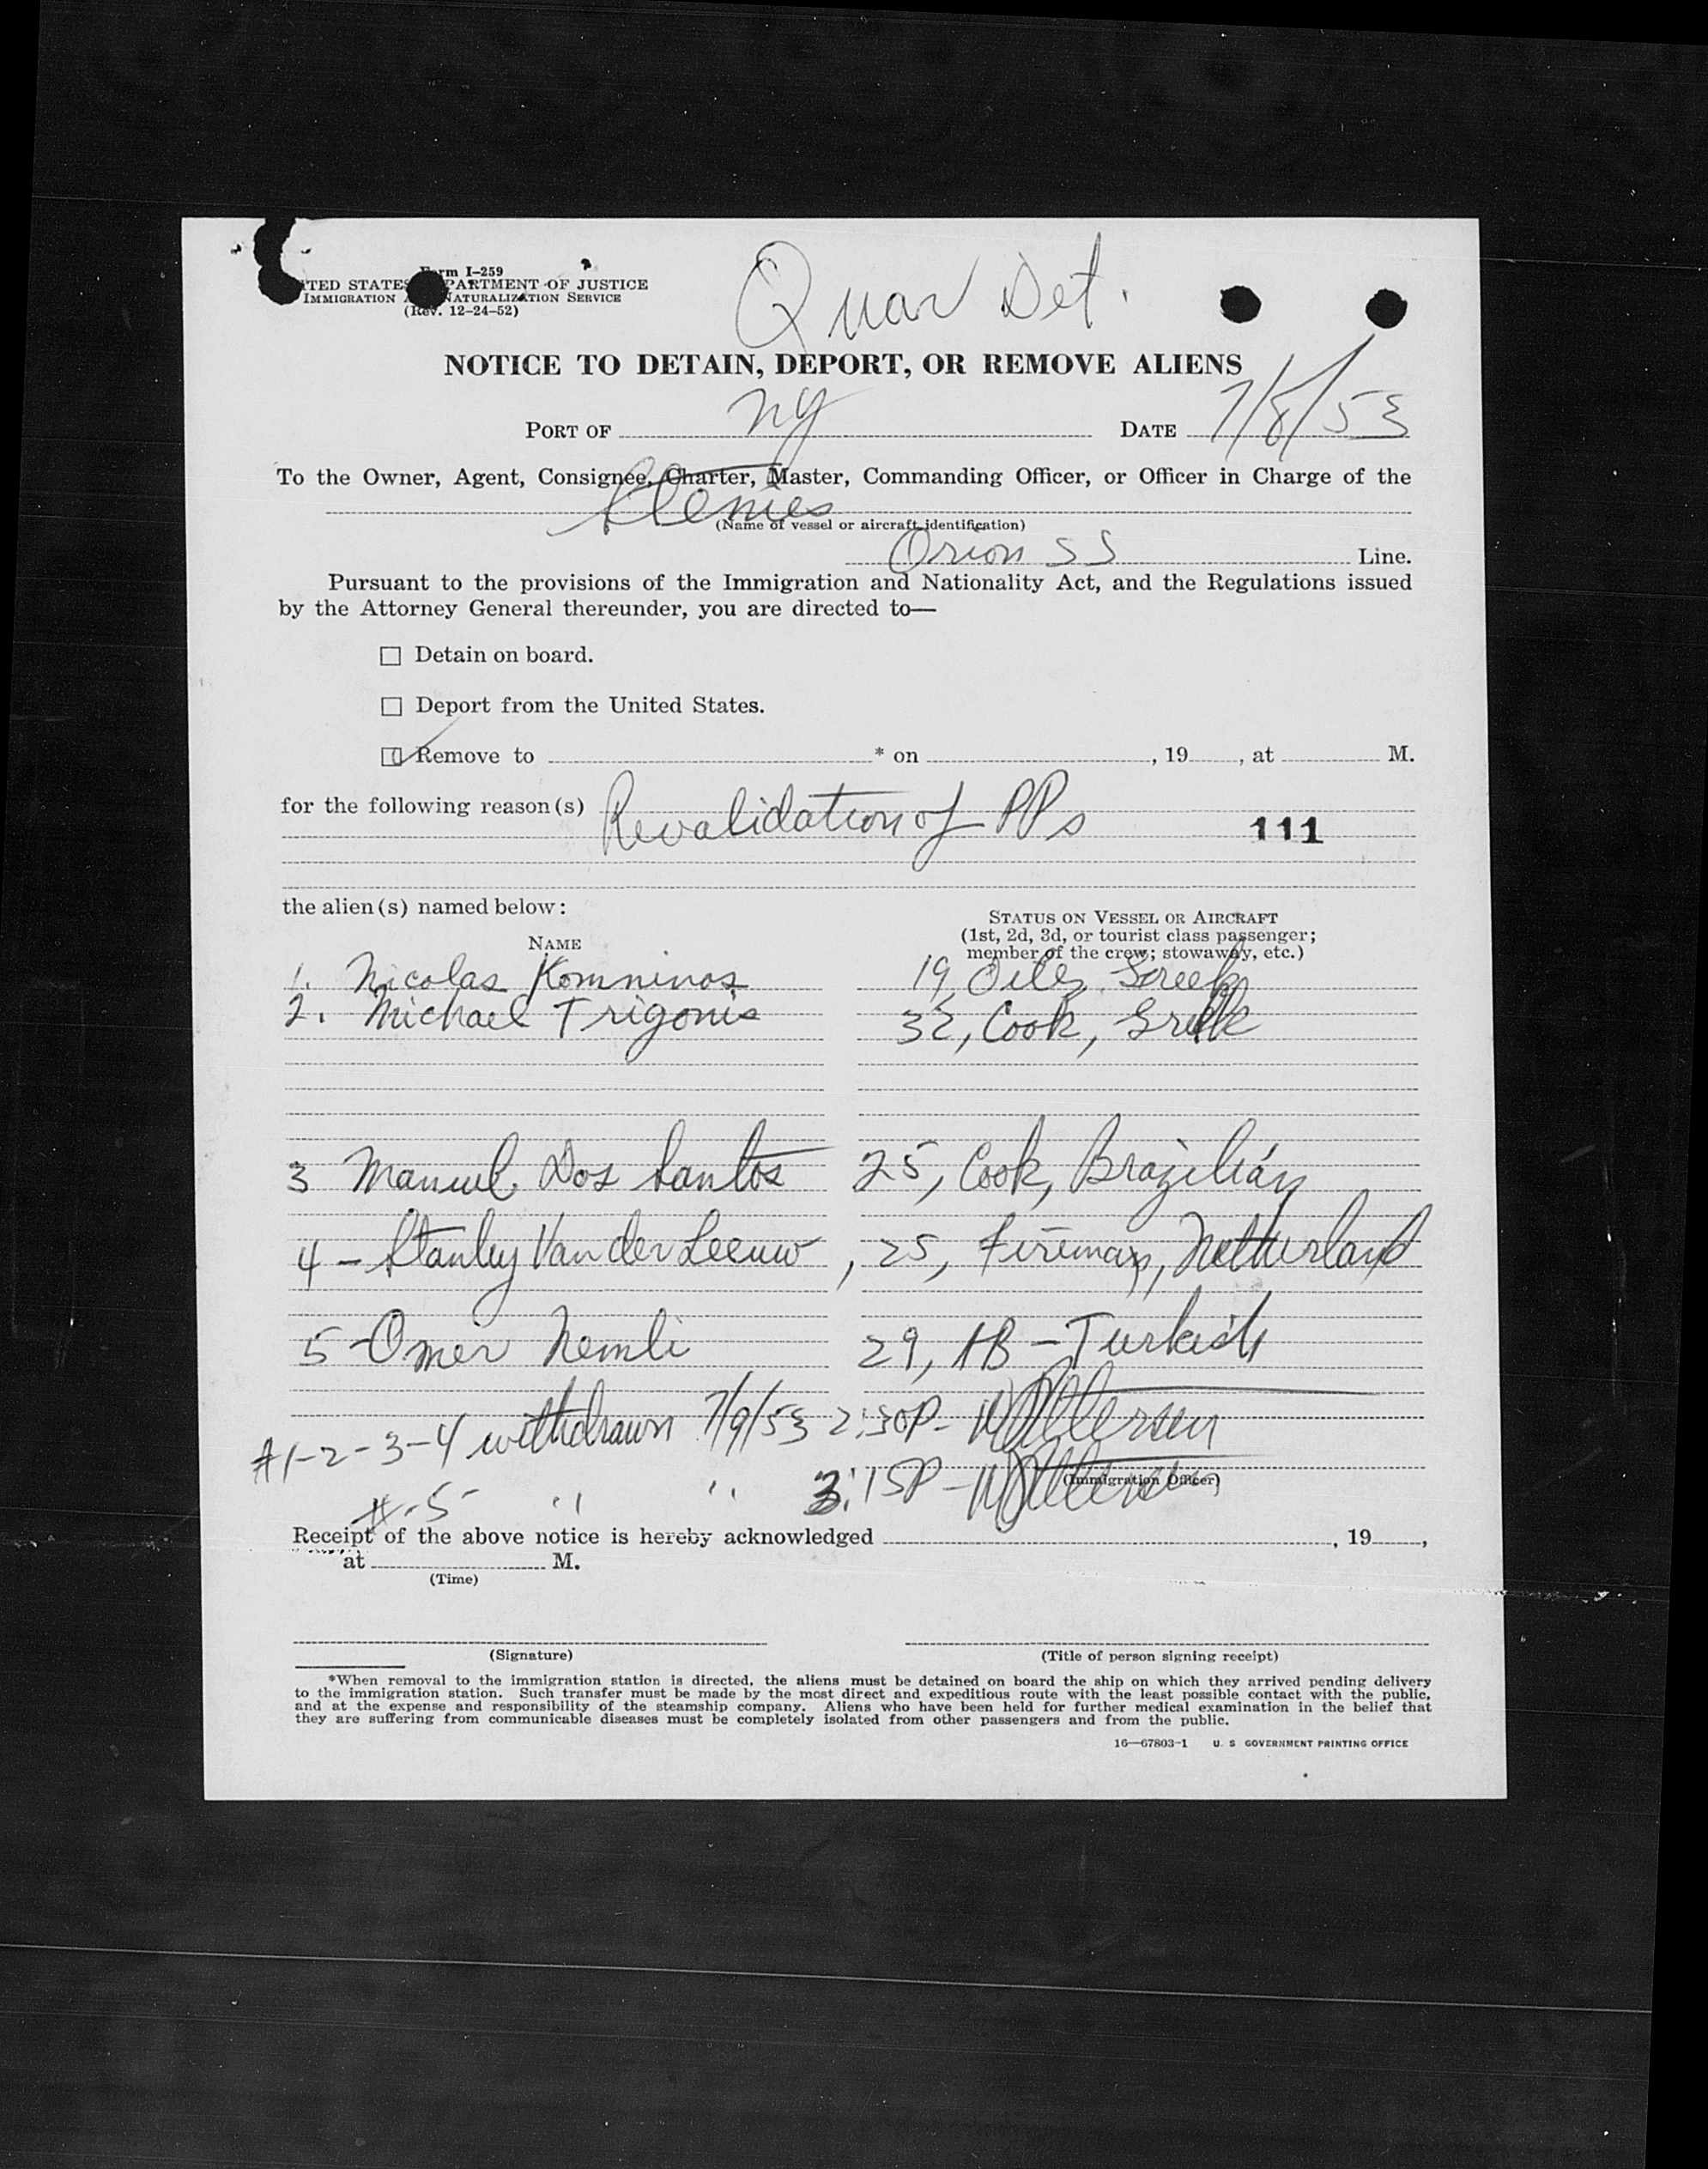 Form I-259
UNITED STATES DEPARTMENT OF JUSTICE
IMMIGRATION AND NATURALIZATION SERVICE
(Rev. 12-24-52)
Quar Det.
NOTICE TO DETAIN, DEPORT, OR REMOVE ALIENS
PORT OF NY DATE 7/8/53
To the Owner, Agent, Consignee, Charter, Master, Commanding Officer, or Officer in Charge of the
(Name of vessel or aircraft identification)
Orion SS Line.
Pursuant to the provisions of the Immigration and Nationality Act, and the Regulations issued
by the Attorney General thereunder, you are directed to—
☐ Detain on board.
☐ Deport from the United States.
☑ Remove to * on , 19 , at M.
for the following reason(s) Revalidation of PPs 111
the alien(s) named below:
STATUS ON VESSEL OR AIRCRAFT
(1st, 2d, 3d, or tourist class passenger;
NAME member of the crew; stowaway, etc.)
1. Nicolas Komninos 19, Oiler, Greek
2. Michael Trigonis 32, Cook, Greek
3 Manuel Dos Santos 25, Cook, Brazilian
4 - Stanley Van der Leeuw, 25, Fireman, Netherland
5 - Omer Nemli 29, AB - Turkish
#1-2-3-4 withdrawn 7/9/53 2:30P -
(Immigration Officer)
#-5 " " 3:15P -
Receipt of the above notice is hereby acknowledged , 19 ,
at M.
(Time)
(Signature) (Title of person signing receipt)
*When removal to the immigration station is directed, the aliens must be detained on board the ship on which they arrived pending delivery
to the immigration station. Such transfer must be made by the most direct and expeditious route with the least possible contact with the public,
and at the expense and responsibility of the steamship company. Aliens who have been held for further medical examination in the belief that
they are suffering from communicable diseases must be completely isolated from other passengers and from the public.
16—67803-1 U. S GOVERNMENT PRINTING OFFICE